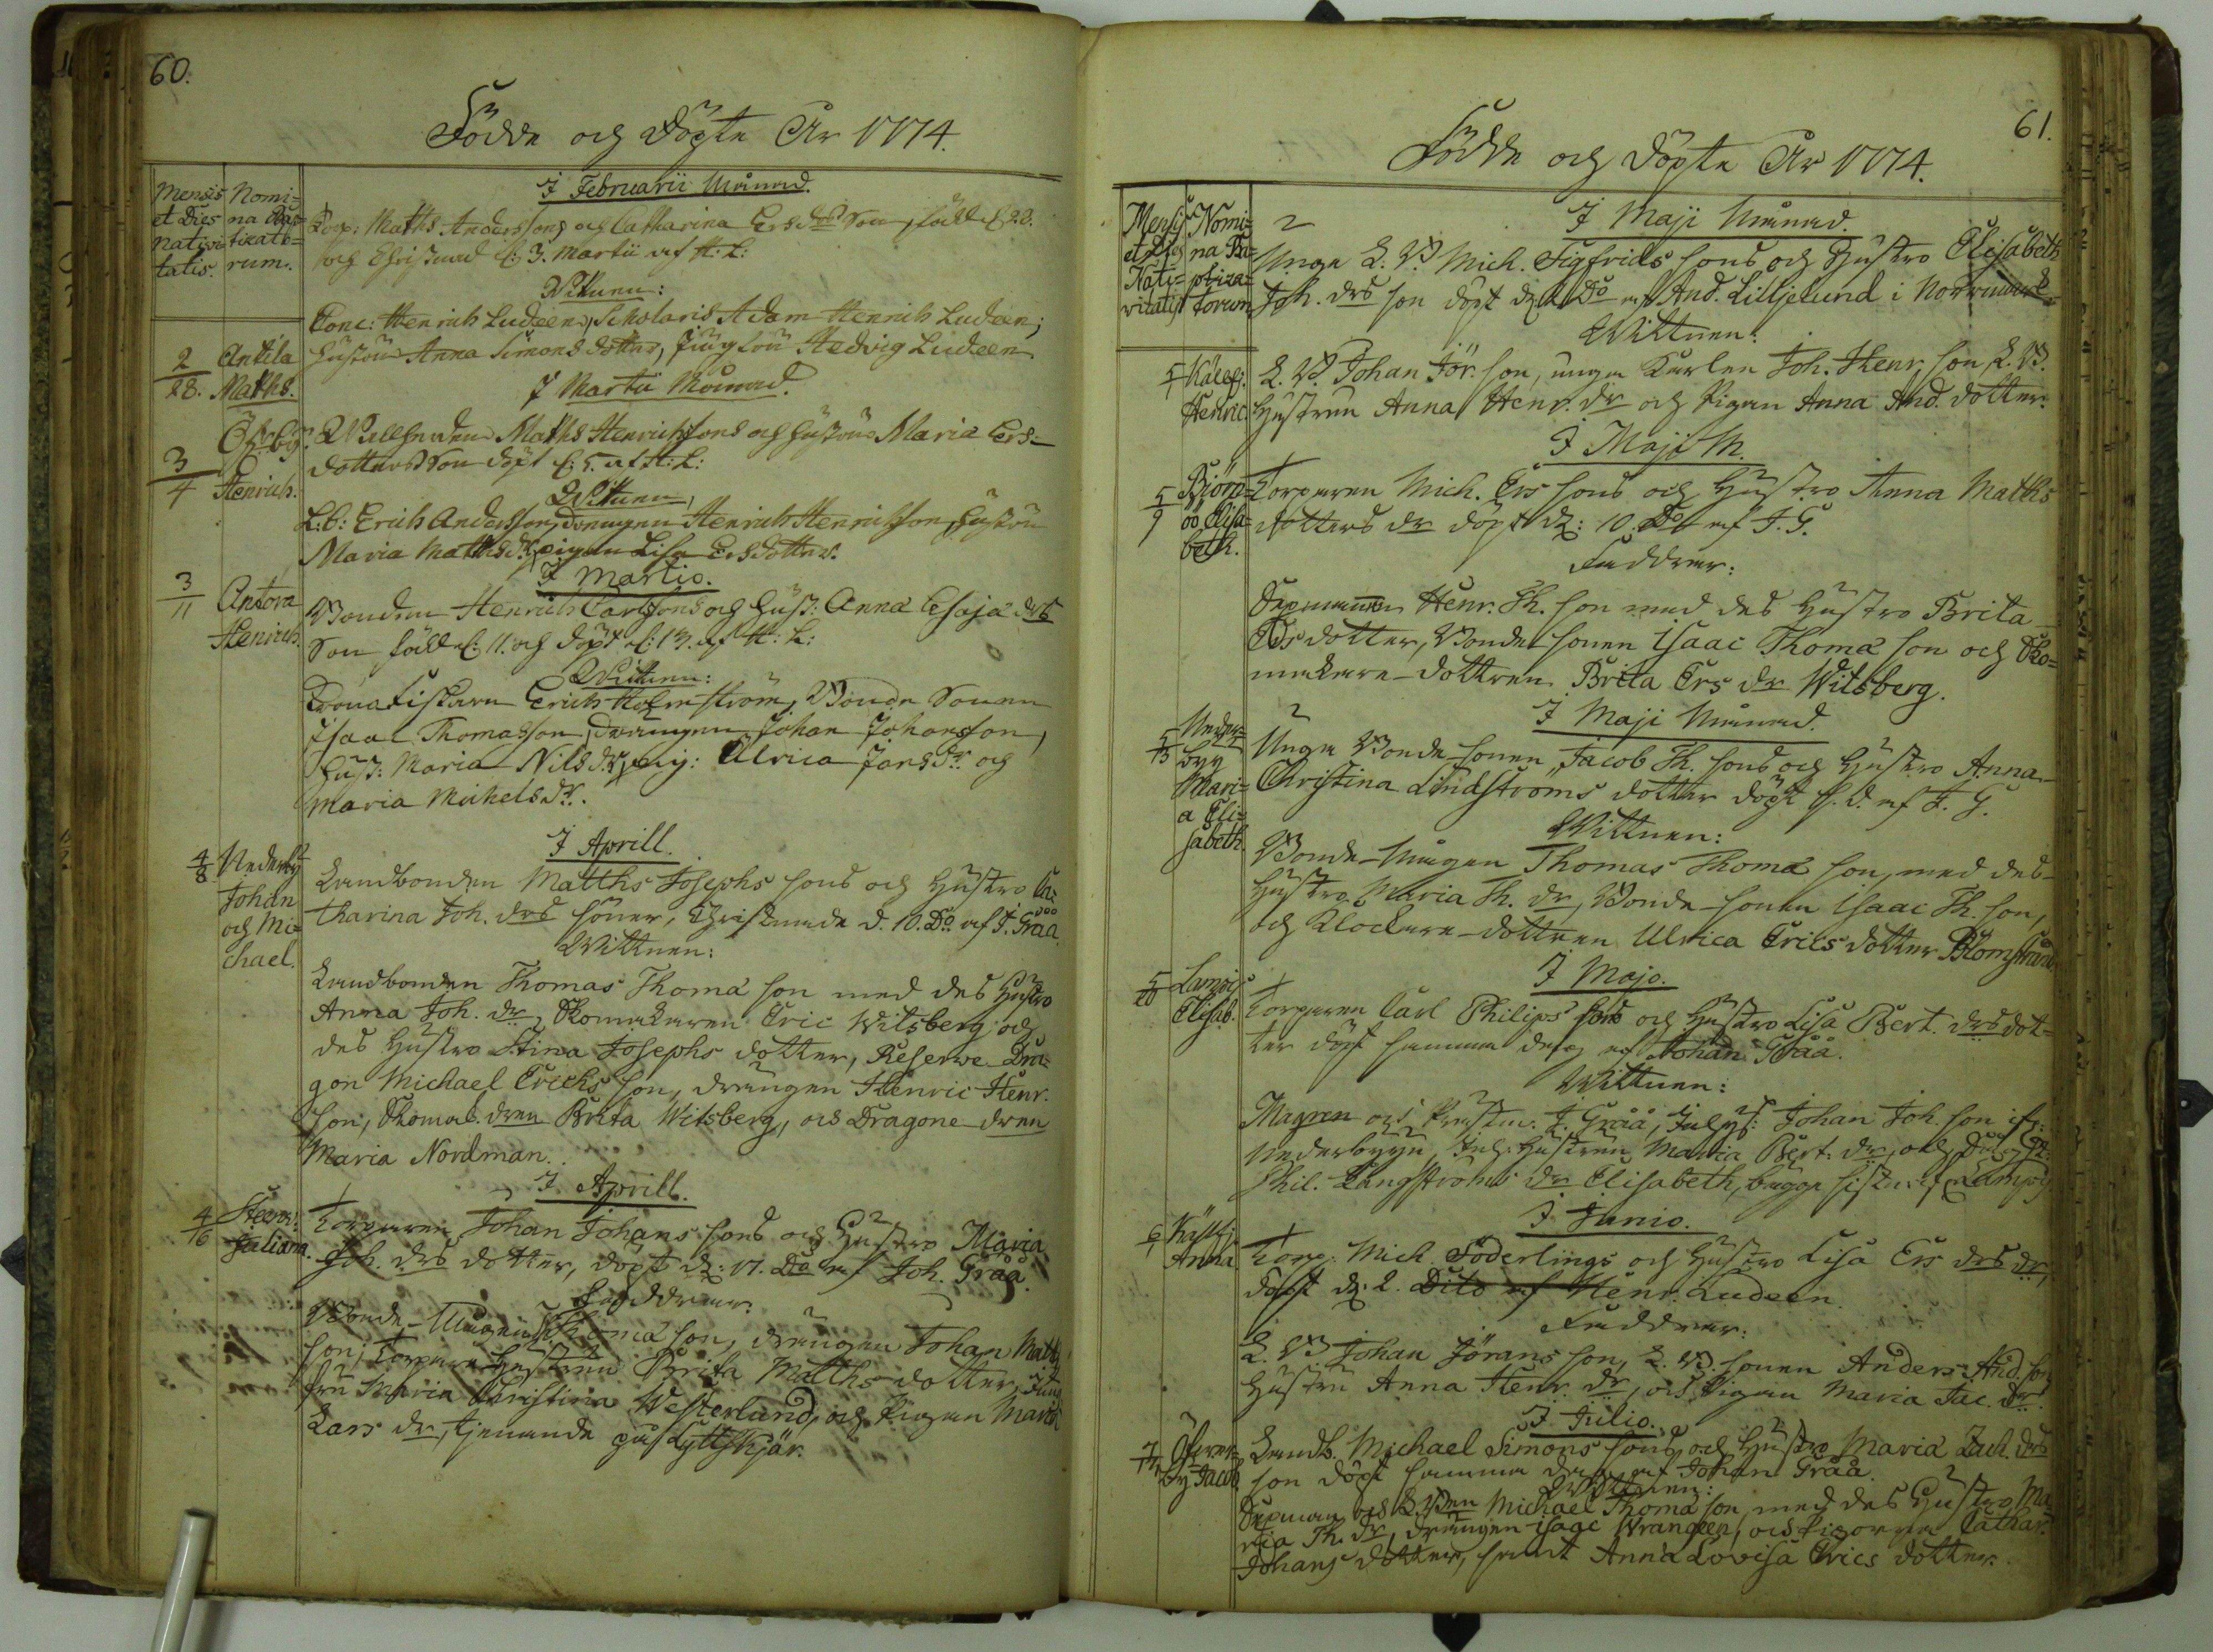 60.
Födde och Döpte År 1774.
Mensis et Dies nativitatis.
Nomina Baptizatorum.
I Februarii Månad.
2/28. Antila Maths.
Torp: Maths Anderssons och Catharina Ers drs Son, född d. 28.
och Christnad d: 3. Martii af H: L:
Vittnen:
Conc: Henrich Ludeen, Scholaris Adam Henrich Ludeen,
hustru Anna Simons dotter, Jungfru Hedvig Ludeen
I Martii Månad.
3/4 Öfrby Henrich.
Maths Henrichssons och hustrus Maria Ers-
dotters Son döpt d: 5. af H: L:
Vittnen,
L:b: Erich Andersson, drängen Henrich Henricsson, hustru
Maria Maths dr, pigan Lisa Ersdotter.
I Martio.
3/11 Antora Henrich.
Bonden Henrich Carlssons och hust: Anna Esaja drs
Son född d: 11. och döpt d: 13. af H: L:
Vittnen:
Erich Holmström, Bonde Sonen
Isaac Thomasson, drängen Johan Johansson,
hust: Maria Nils dr, pig: Ulrica Jans dr. och
Maria Michels dr.
I Aprill.
4/8 Nederby Johan och Michael.
Landbonden Matths Josephs sons och Hustro Ca-
tharina Joh. drs söner, Christnade d. 10. Do af J. Gråå.
Vittnen:
Landbonden Thomas Thomæ son med des Hustro
Anna Joh. dr, Skomakaren Eric Witsberg och
des Hustro Stina Josephs dotter, Reserve Dra-
gon Michael Erichs son, drängen Henric Henr.
son, Skomak. dren Brita Witsberg, och Dragone dren
Maria Nordman.
I Aprill.
4/16 Juliana.
Torparen Johan Johans sons och Hustro Maria
Joh. drs dotter, döpt d: 17. Do af Joh. Gråå.
Faddrar:
Bonde-Mågen Thomæ son, drängen Johan Matths
son, Torpare-Hustrun Brita Matths dotter,
Maria Christina Westerlund, och Pigan Maria
Lars dr, tjenande på Kyttskjär.
61.
Födde och Döpte År 1774.
Mensis et Dies Nativitatis
Nomina Baptizatorum
I Maji Månad.
5/1 Henric
Unga L. B. Mich. Sigfrids sons och Hustro Elisabeth
Joh. drs son döpt d. 2 Do af And. Lilljelund i Norrmark
Wittnen:
L. B. Johan Jör. son, unga Karlen Joh. Henr. son, L. B.
Hustrun Anna Henr. dr och Pigan Anna And. dotter.
I Maji M.
5/9 Björnöö Elisabeth.
Torparen Mich. Ers sons och Hustro Anna Matths
dotters dr döpt d: 10. Do af J. G.
Faddrar:
Henr. Th. son med des Hustro Brita
Ers dotter, Bonde sonen Isaac Thomæ son och Sko-
makare-dottren Brita Ers dr Witsberg.
I Maji Månad.
5/13 Nederbyy Maria Elisabeth.
Unga Bonde-sonen Jacob Th. sons och Hustro Anna
Christina Lindströms dotter döpt s. d. af J. G.
Wittnen:
Bonde-Mågen Thomas Thomæ son, med des
Hustro Maria Th. dr, Bonde-sonen Isaac Th. son,
och Klockare-dottren Ulrica Erics dotter Blomstrand
I Majo.
5/20 Lampis Elisab.
Torparen Carl Philips sons och Hustro Lisa Bert. drs dot-
ter döpt samma dag af Johan Gråå.
Wittnen:
J. Gråå, Johan Joh. son ifr.
Nederbyyn, Hustrun Maria Bert. dr, och
Phil. Långströms dr Elisabeth, Lampis
I Junio.
6/1 Anna
Torp. Mich. Söderlings och Hustro Lisa Ers drs dr,
döpt d: 2. Dito af Henr. Ludeen.
Faddrar:
L. B. Johan Jörans son, L. B. sonen Anders And. son
Hustru Anna Henr. dr, och Pigan Maria Jac. dr.
I Julio.
Öfverby Jacob
Landb. Michael Simons sons och Hustro Maria Zach. drs
son döpt samma dag af Johan Gråå.
Wittnen:
Michael Thomæ son med des Hustro Ma-
ria Th. dr, drängen Isaac Wrangeen, och Pigorna Cathar.
Johans dotter, samt Anna Lovisa Erics dotter.